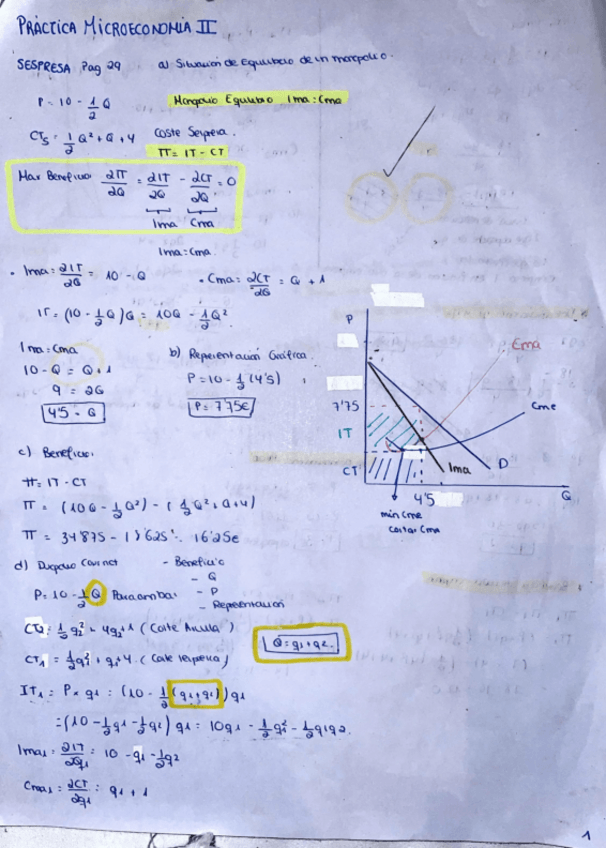 PRÁCTICA MICROECONOMÍA II
SESPRESA Pag 29 a) Situación de Equilibrio de un monopolio.
P = 10 - 1/2 Q Monopolio Equilibrio Ima = Cma
CTs = 1/2 Q² + Q + 4 Coste Sespresa.
π = IT - CT
Max Beneficio: ∂π/∂Q = ∂IT/∂Q - ∂CT/∂Q = 0
Ima Cma
Ima = Cma.
· Ima = ∂IT/∂Q = 10 - Q · Cma = ∂CT/∂Q = Q + 1
IT = (10 - 1/2 Q) Q = 10Q - 1/2 Q²
Ima = Cma
10 - Q = Q + 1
9 = 2Q
4'5 = Q
b) Representación Gráfica.
P = 10 - 1/2 (4'5)
P = 7'75€
P
Cma
7'75
Cme
IT
CT
Ima
D
4'5
Q
min Cme
corta Cma
c) Beneficio:
π = IT - CT
π = (10Q - 1/2 Q²) - (1/2 Q² + Q + 4)
π = 34'875 - 18'625 = 16'25€
d) Duopolio Cournot - Beneficio
- Q
- P
- Representación
P = 10 - 1/2 Q Para ambas
CT2 = 1/2 q2² + 4q2 + 1 (Coste
CT1 = 1/2 q1² + q1 + 4 (Coste Sespresa)
Q = q1 + q2.
IT1 = P × q1 = (10 - 1/2 (q1 + q2)) q1
= (10 - 1/2 q1 - 1/2 q2) q1 = 10q1 - 1/2 q1² - 1/2 q1q2.
Ima1 = ∂IT/∂q1 = 10 - q1 - 1/2 q2
Cma1 = ∂CT/∂q1 = q1 + 1
1